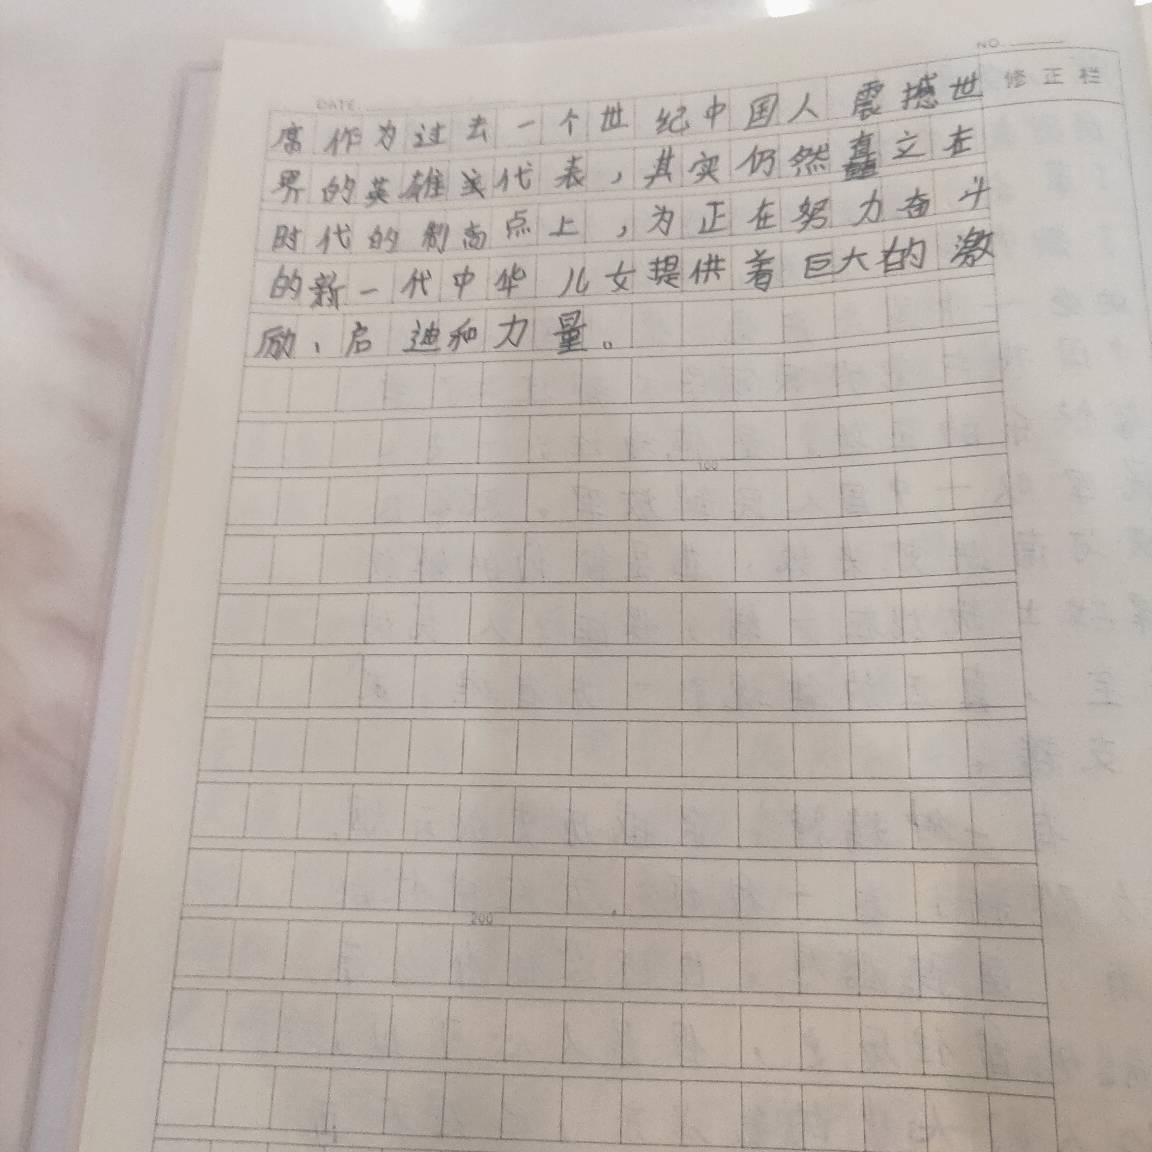 NO.
DATE.
修正栏
席作为过去一个世纪中国人震撼世
界的英雄式代表，其实仍然矗立在
时代的制高点上，为正在努力奋斗
的新一代中华儿女提供着巨大的激
励、启迪和力量。
100
200